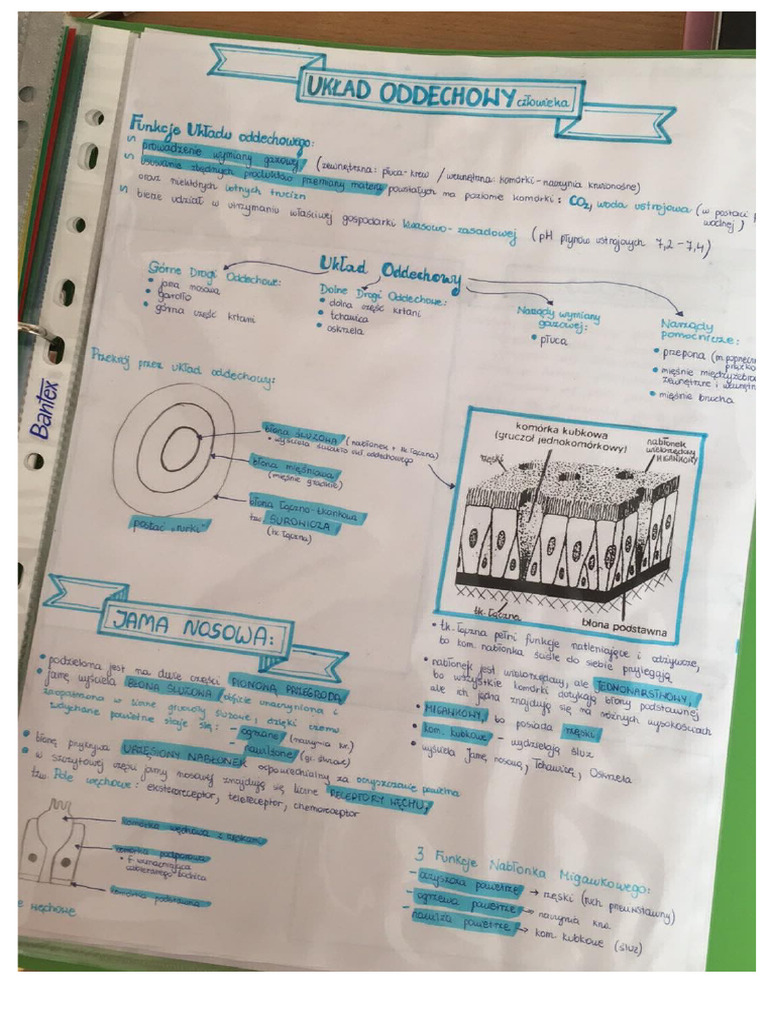 UKŁAD ODDECHOWY człowieka
Funkcje Układu oddechowego:
prowadzenie wymiany gazowej (zewnętrzna: płuca-krew / wewnętrzna: komórki-naczynia krwionośne)
usuwanie zbędnych produktów przemiany materii powstałych na poziomie komórki: CO2, woda ustrojowa (w postaci
wodnej)
oraz niektórych lotnych trucizn
bierze udział w utrzymaniu właściwej gospodarki kwasowo-zasadowej (pH płynów ustrojowych 7,2-7,4)
Układ Oddechowy
Górne Drogi Oddechowe:
• jama nosowa
• gardło
• górna część krtani
Dolne Drogi Oddechowe:
• dolna część krtani
• tchawica
• oskrzela
Narządy wymiany
gazowej:
• płuca
Narządy
pomocnicze:
• przepona (m. poprzecznie
• mięśnie międzyżebrowe
zewnętrzne i
• mięśnie brzucha
Bantex
Przekrój przez układ oddechowy:
błona śluzowa (nabłonek + tk. łączna)
• wyściela światło ukł. oddechowego
błona mięśniowa
(mięśnie gładkie)
błona łączno-tkankowa
tzw. SUROWICZA
(tk. łączna)
postać „rurki"
komórka kubkowa
(gruczoł jednokomórkowy)
rzęski
nabłonek
wielorzędowy
MIGAWKOWY
tk. łączna
błona podstawna
JAMA NOSOWA:
• podzielona jest na dwie części PIONOWĄ PRZEGRODĄ
• jamę wyściela BŁONA ŚLUZOWA obficie unaczyniona i
zaopatrzona w liczne gruczoły śluzowe, dzięki czemu
wdychane powietrze staje się: - ogrzane (naczynia kr.)
- nawilżone (gr. śluzowe)
• błonę pokrywa URZĘSIONY NABŁONEK odpowiedzialny za oczyszczanie powietrza
• w szczytowej części jamy nosowej znajdują się liczne RECEPTORY WĘCHU,
tzw. Pole węchowe: eksteroreceptor, telereceptor, chemoreceptor
komórka węchowa z rzęskami
komórka podporowa
komórka podstawna
węchowe
• tk. łączna pełni funkcje natleniające i odżywcze,
bo kom. nabłonka ściśle do siebie przylegają
• nabłonek jest wielorzędowy, ale JEDNOWARSTWOWY,
bo wszystkie komórki dotykają błony podstawnej
ale ich jądra znajdują się na różnych wysokościach
• MIGAWKOWY, bo posiada rzęski
• kom. kubkowe - wydzielają śluz
• wyściela Jamę nosową, Tchawicę, Oskrzela
3 Funkcje Nabłonka Migawkowego:
- oczyszcza powietrze → rzęski (ruch
- ogrzewa powietrze → naczynia krw.
- nawilża powietrze → kom. kubkowe (śluz)